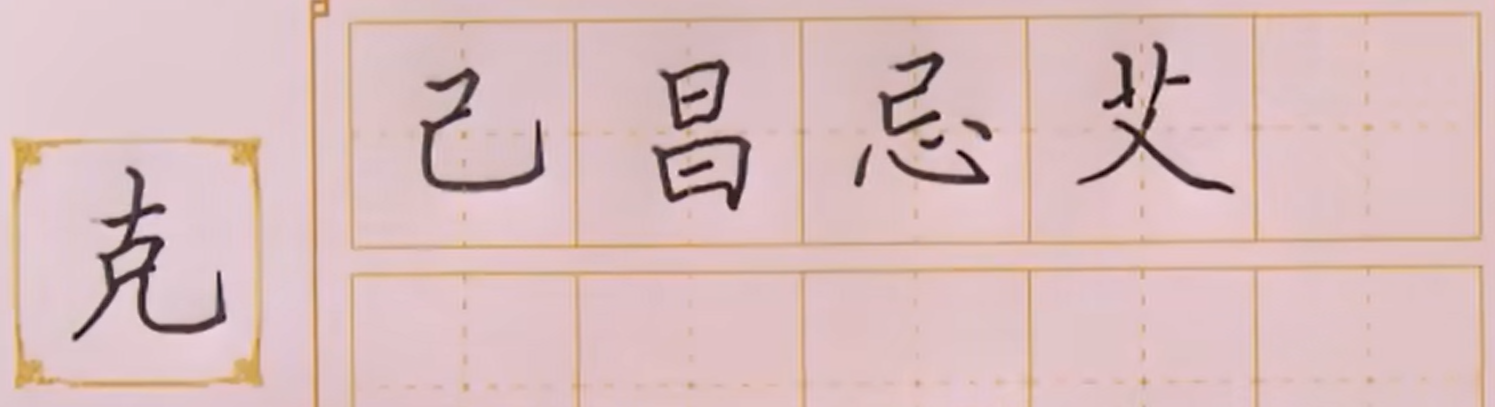 克
己昌忌艾